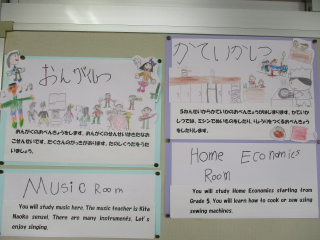 おんがくしつ
おんがくのおべんきょうをします。おんがくのせんせいはきたなお
こせんせいです。たくさんのがっきがあります。たのしくうたをうた
いましょう。
MUSIC ROOM
You will study music here. The music teacher is Kita
Naoko sensei. There are many instruments. Let's
enjoy singing.
かていかしつ
5ねんせいからかていかのおべんきょうがはじまります。かていか
しつでは、ミシンでぬいものをしたり、りょうりをつくるおべんきょう
をしたりします。
HOME ECONOMICS
ROOM
You will study Home Economics starting from
Grade 5. You will learn how to cook or sew using
sewing machines.